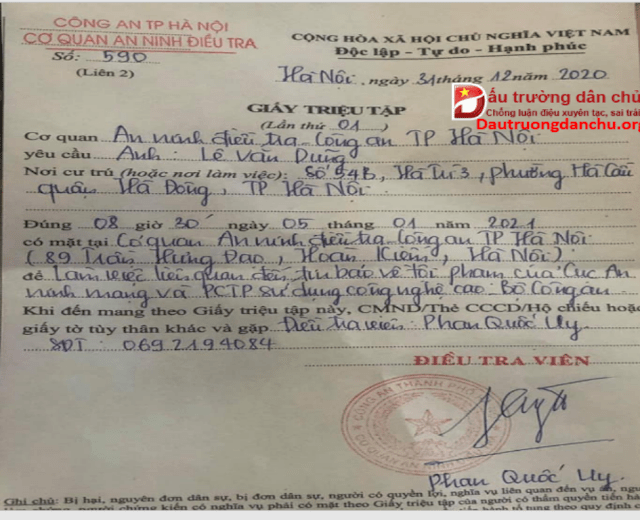 CÔNG AN TP HÀ NỘI
CƠ QUAN AN NINH ĐIỀU TRA
Số: 590
(Liên 2)
CỘNG HÒA XÃ HỘI CHỦ NGHĨA VIỆT NAM
Độc lập - Tự do - Hạnh phúc
Hà Nội, ngày 31 tháng 12 năm 2020
Đấu trường dân chủ
Chống luận điệu xuyên tạc, sai trái
Dautruongdanchu.org
GIẤY TRIỆU TẬP
(Lần thứ 01)
Cơ quan An ninh điều tra Công an TP Hà Nội
yêu cầu Anh: Lê Văn Dũng
Nơi cư trú (hoặc nơi làm việc): Số 54B, Hà Trì 3, phường Hà Cầu
quận Hà Đông, TP Hà Nội.
Đúng 08 giờ 30 ngày 05 tháng 01 năm 2021
có mặt tại Cơ quan An ninh điều tra Công an TP Hà Nội
(89 Trần Hưng Đạo, Hoàn Kiếm, Hà Nội)
để Làm việc liên quan đến tin báo về tội phạm của Cục An
ninh mạng và PCTP sử dụng công nghệ cao - Bộ Công an
Khi đến mang theo Giấy triệu tập này, CMND/Thẻ CCCD/Hộ chiếu hoặc
giấy tờ tùy thân khác và gặp Điều tra viên: Phan Quốc Uy
SĐT: 0692194084
ĐIỀU TRA VIÊN
CÔNG AN THÀNH PHỐ
CƠ QUAN AN NINH
Phan Quốc Uy.
Ghi chú: Bị hại, nguyên đơn dân sự, bị đơn dân sự, người có quyền lợi, nghĩa vụ liên quan đến vụ án, người
chứng kiến có nghĩa vụ phải có mặt theo Giấy triệu tập của người có thẩm quyền tiến hành